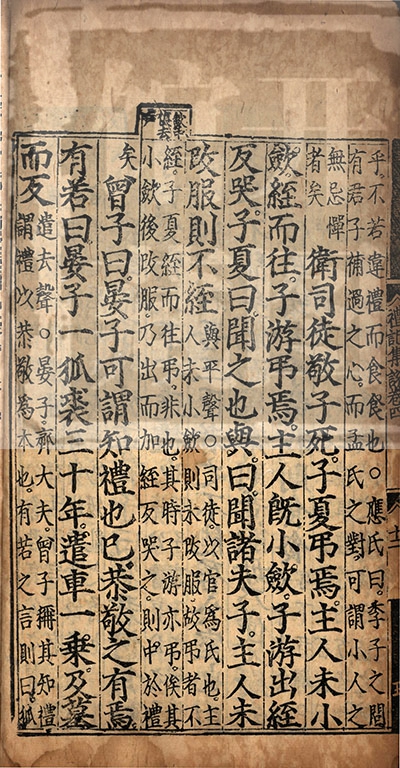 禮記集說卷四
十二
乎。不若違禮而食食也。○應氏曰。季子之問
有君子補過之心。而孟氏之對。可謂小人之
無忌憚
者矣
衛司徒敬子死。子夏弔焉。主人未小
歛。絰而往。子游弔焉。主人旣小歛。子游出絰
反哭。子夏曰。聞之也與。曰。聞諸夫子。主人未
改服則不絰
與平聲。○司徒。以官爲氏也。主
人未小歛則未改服。故弔者不
絰。子夏絰而往弔。非也。其時子游亦弔。俟其
小歛後改服。乃出而加絰反哭之。則中於禮
矣
曾子曰。晏子可謂知禮也已。恭敬之有焉。
有若曰。晏子一狐裘三十年。遣車一乘。及墓
而反
遣去聲。○晏子。齊大夫。曾子稱其知禮
謂禮以恭敬爲本也。有若之言則曰。狐